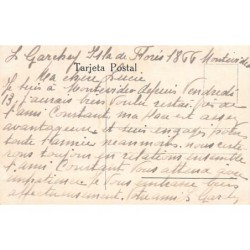 L Garchey Isla de Flores 1866 Montevideo
Tarjeta Postal
Ma chère Lucie
Je suis à Montevideo depuis Vendredi
13, j'aurais bien voulu rester près de
l'ami Constant ma place est assez
avantageuse et suis engagé pour
toute l'année néanmoins nous
nous toujours en relations ensemble
l'ami Constant vous attend avec
impatience je vous embrasse bien
affectueusement. votre ami L Garchey